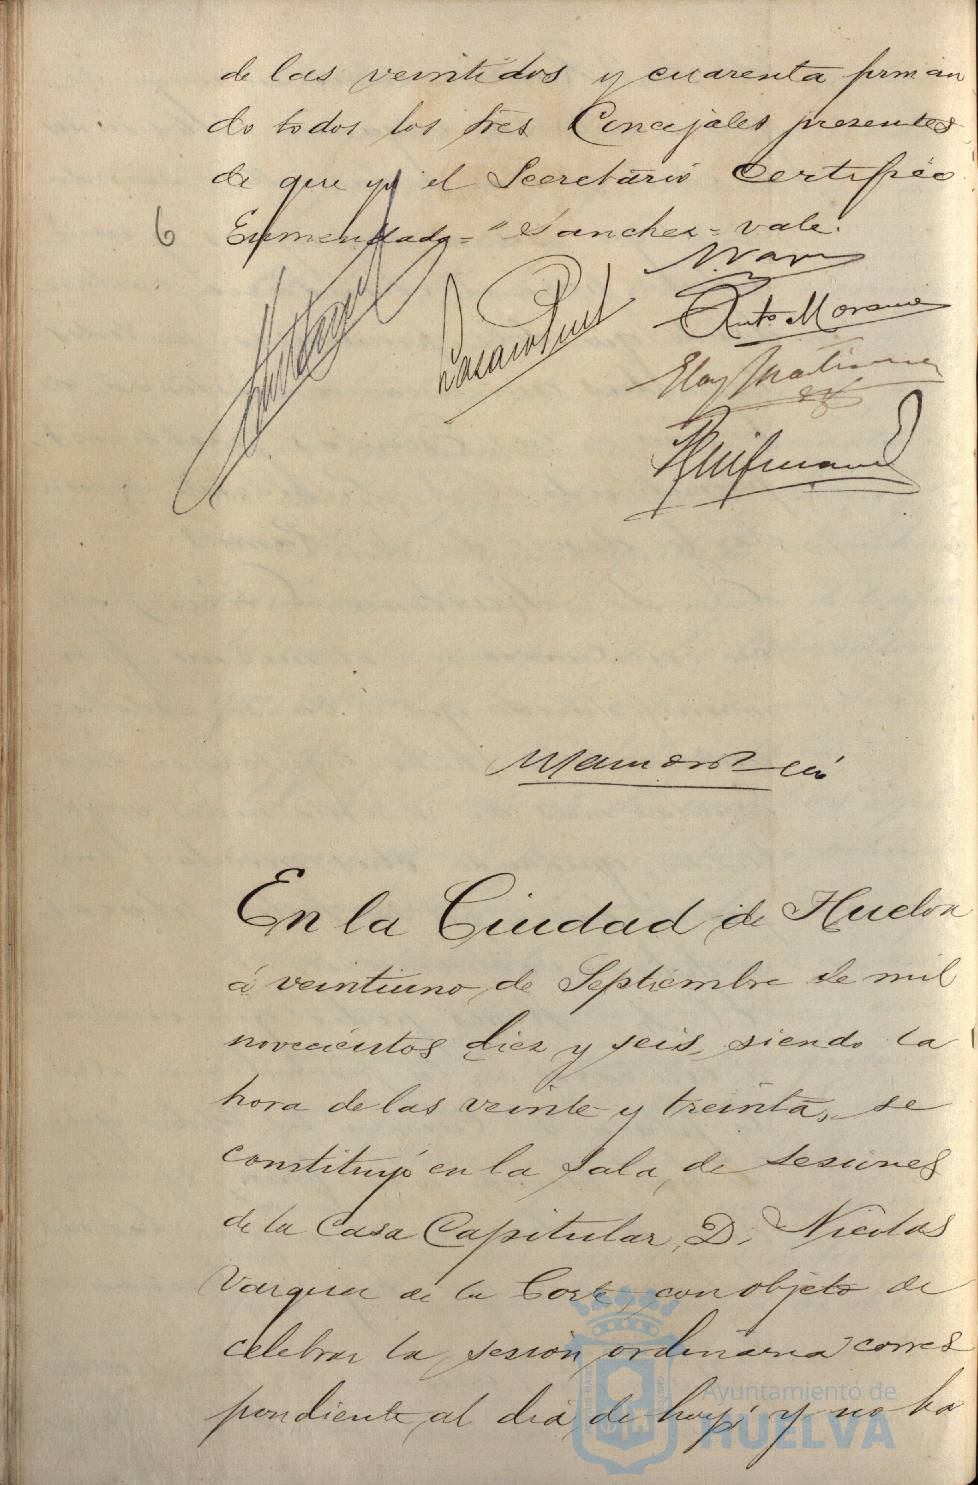 de las veintidos y cuarenta firman
do todos los tres Concejales presentes
de que yo el Secretario Certifico
6 Enmendado = "Sanchez = vale.
Lazaro
Anto Moreno
Eloy
En la Ciudad de Huelva
á veintiuno de Septiembre de mil
novecientos diez y seis, siendo la
hora de las veinte y treinta, se
constituyó en la sala de sesiones
de la Casa Capitular, D. Nicolas
Vazquez de la Corte, con objeto de
celebrar la sesión ordinaria corres
pondiente al dia de hoy y no ha
Ayuntamiento de
HUELVA